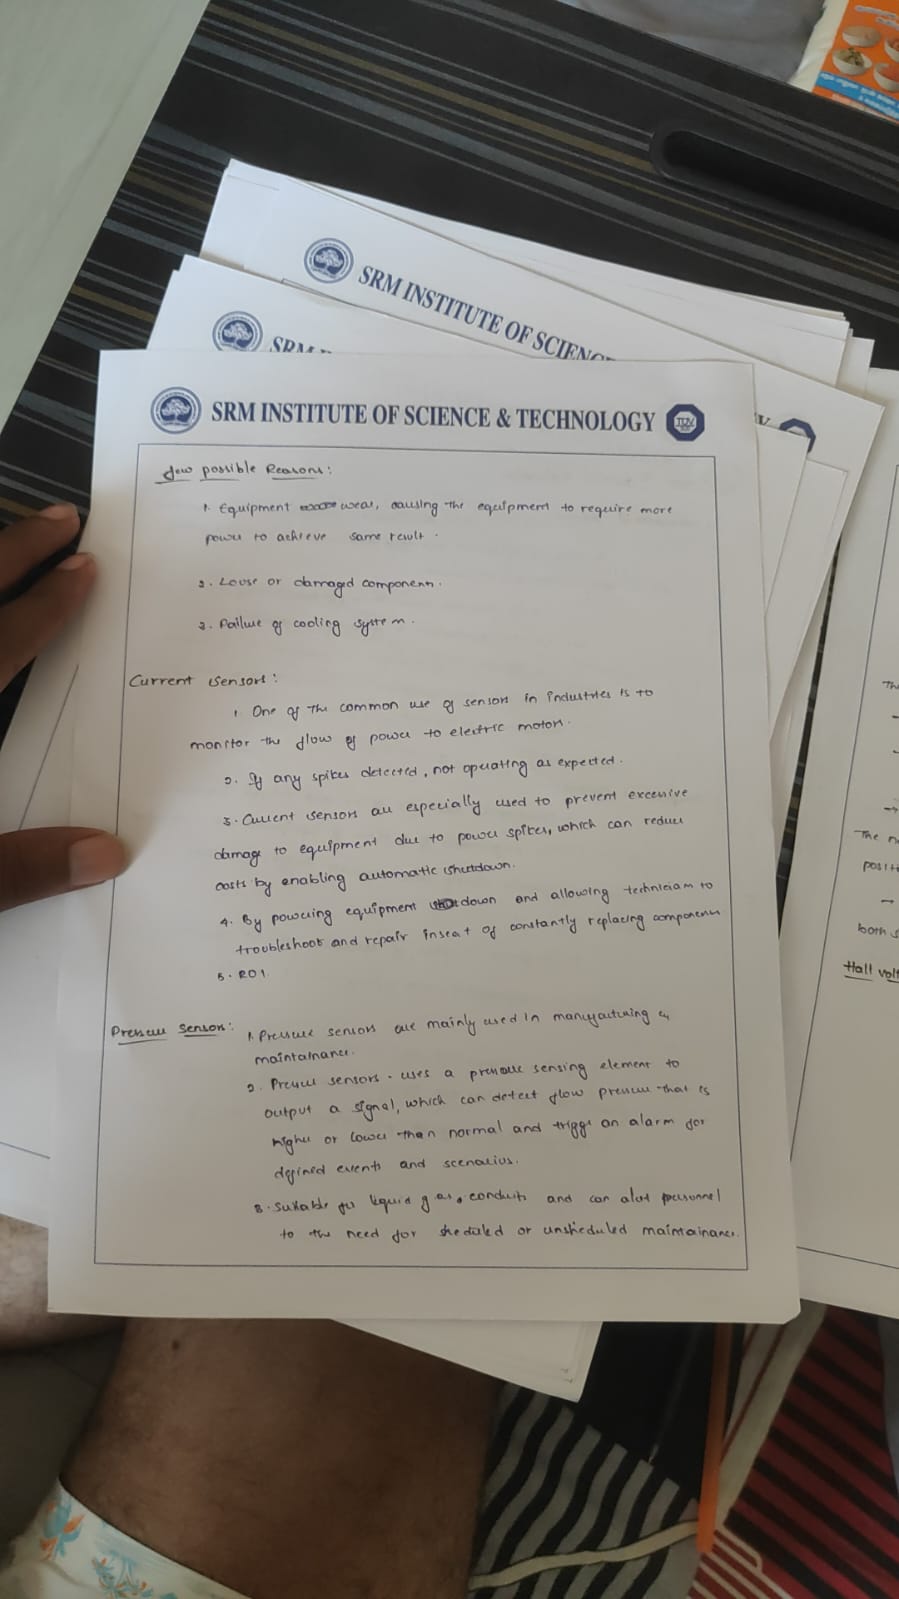 SRM INSTITUTE OF SCIENC
SRM
SRM INSTITUTE OF SCIENCE & TECHNOLOGY
few possible Reasons:
1. Equipment wear, causing the equipment to require more
power to achieve same result.
2. Loose or damaged components.
3. Failure of cooling system.
Current sensors:
1. One of the common use of sensors in industries is to
monitor the flow of power to electric motors.
2. If any spikes detected, not operating as expected.
3. Current sensors are especially used to prevent excessive
damage to equipment due to power spikes, which can reduce
costs by enabling automatic shutdown.
4. By powering equipment down and allowing technicians to
troubleshoot and repair inseat of constantly replacing components
5. ROI.
Pressure Sensors:
1. Pressure sensors are mainly used in manufacturing &
maintainance.
2. Pressure sensors - uses a pressure sensing element to
output a signal, which can detect flow pressure that is
higher or lower than normal and trigger an alarm for
defined events and scenarios.
3. Suitable for liquid gas conduits and can alert personnel
to the need for sheduled or unsheduled maintainance.
The
The n
posit
both s
Hall volt